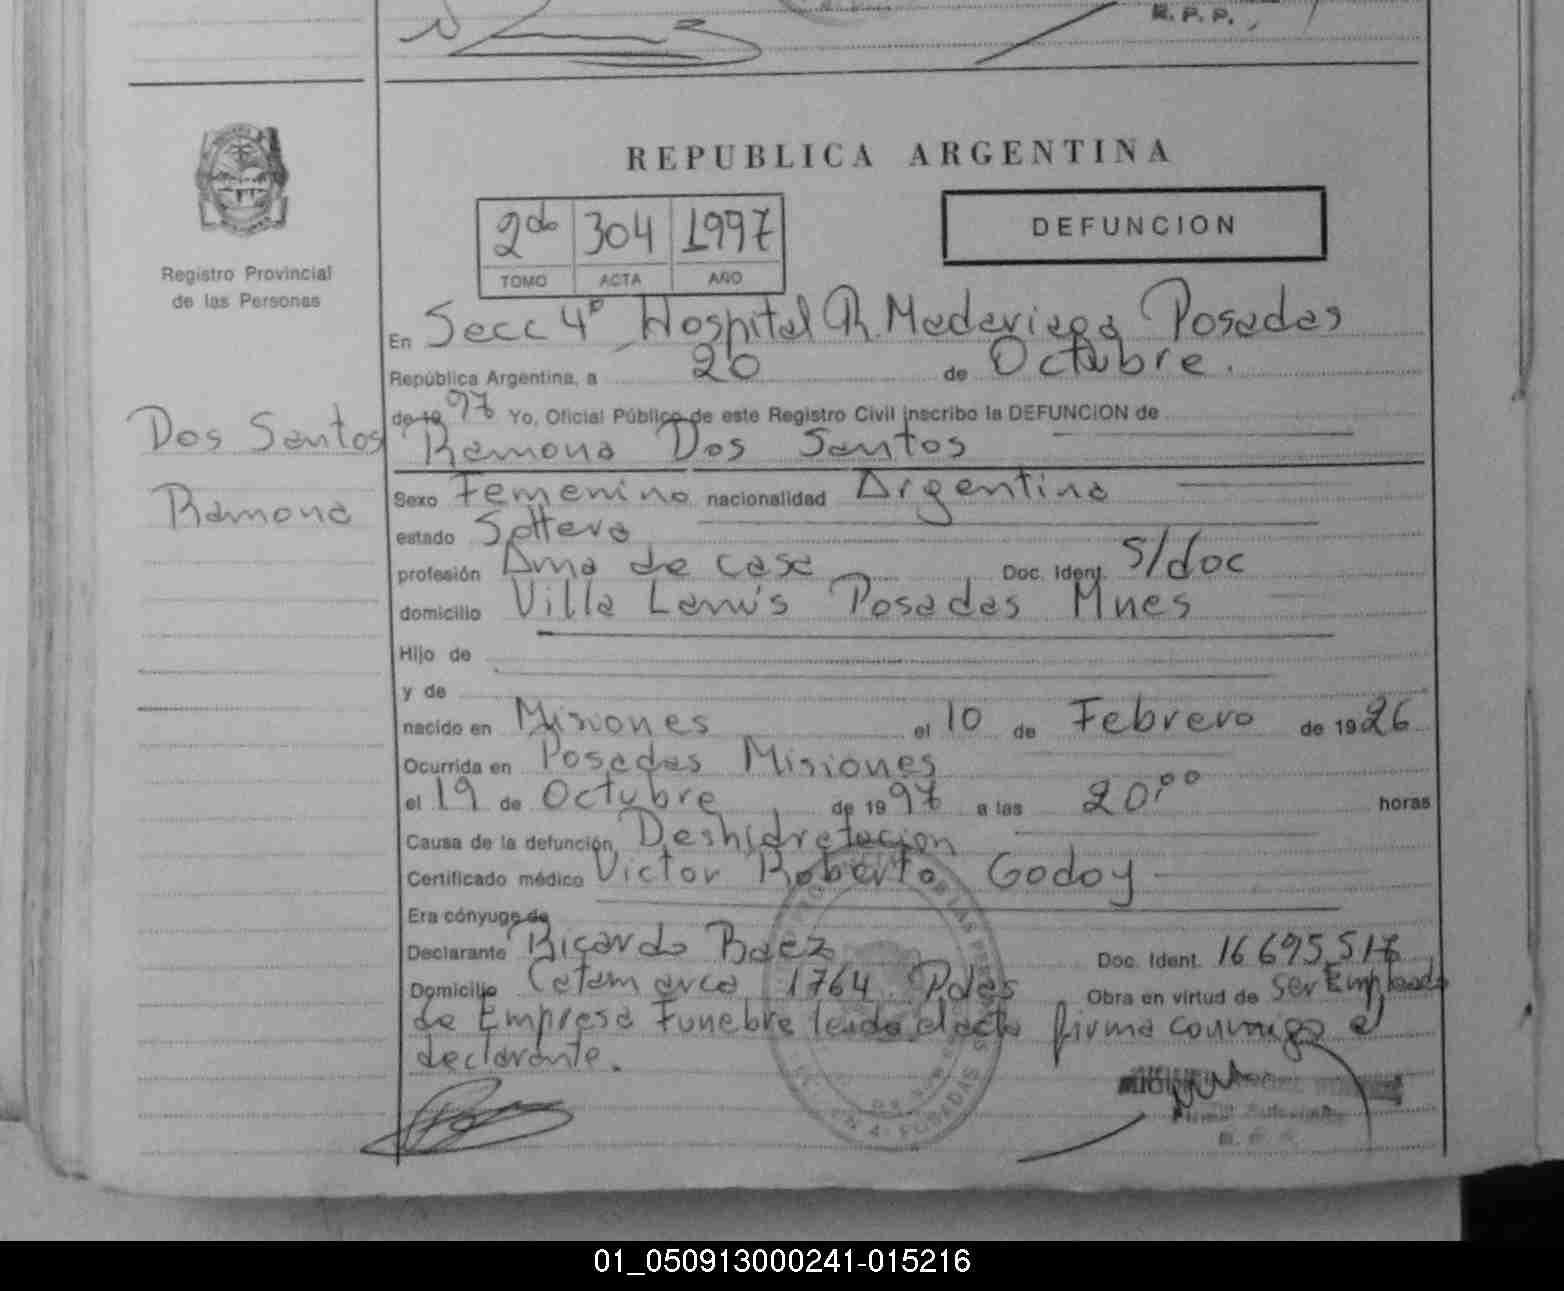 R. P. P.
REPUBLICA ARGENTINA
2do 304 1997
TOMO ACTA AÑO
DEFUNCION
Registro Provincial
de las Personas
En Secc 4º Hospital R. Madariaga Posadas
República Argentina, a 20 de Octubre.
de 19 97 Yo, Oficial Público de este Registro Civil inscribo la DEFUNCION de
Dos Santos
Ramona
Ramona Dos Santos
Sexo Femenino nacionalidad Argentina
estado Soltera
profesión Ama de casa Doc. Ident. S/doc
domicilio Villa Lanús Posadas Mnes
Hijo de
y de
nacido en Misiones el 10 de Febrero de 1926
Ocurrida en Posadas Misiones
el 19 de Octubre de 1997 a las 20,00 horas
Causa de la defunción Deshidratacion
Certificado médico Victor Roberto Godoy
Era cónyuge de
Declarante Ricardo Baez Doc. Ident. 16 695 517
Domicilio Catamarca 1764 Pdas Obra en virtud de ser Empleado
de Empresa Funebre leida el acta firma conmigo el
declarante.
01_050913000241-015216